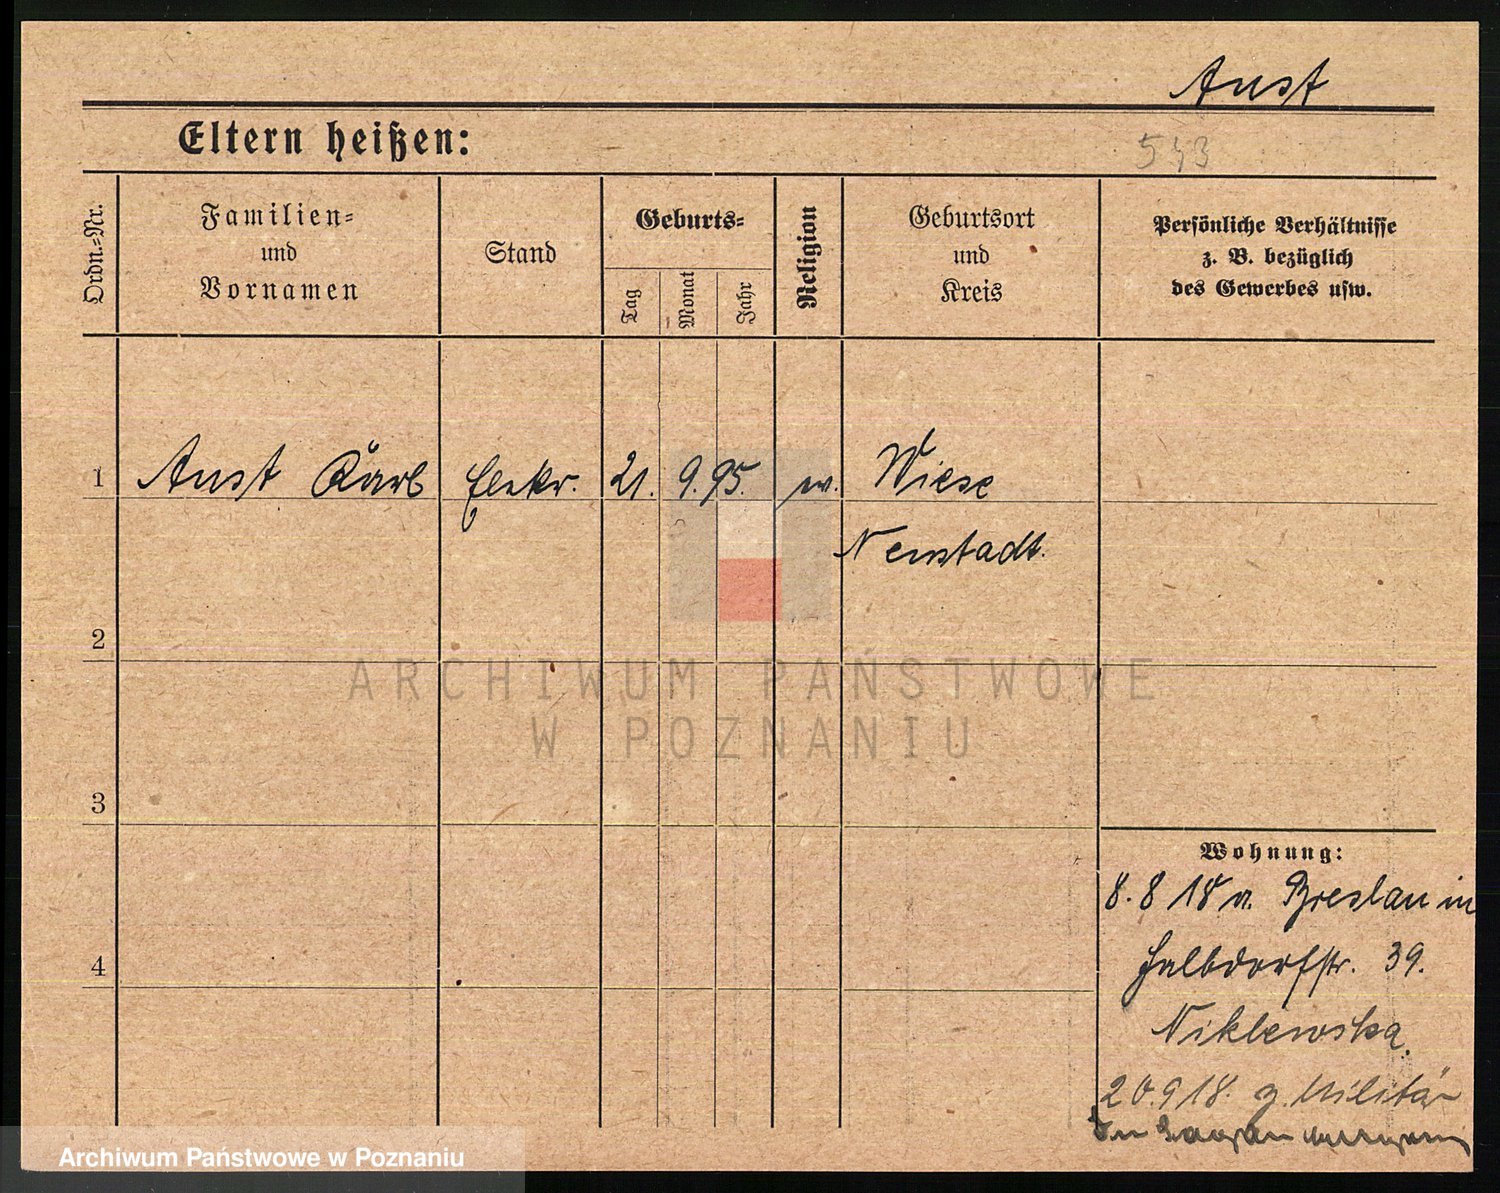 Aust
543
Eltern heißen:
Ordn.=Nr.
Familien=
und
Vornamen
Stand
Geburts=
Tag
Monat
Jahr
Religion
Geburtsort
und
Kreis
Persönliche Verhältnisse
z. B. bezüglich
des Gewerbes usw.
1 Aust Karl Elektr. 21. 9. 95. Wiese
Neustadt.
2
ARCHIWUM PAŃSTWOWE
W POZNANIU
3
Wohnung:
8. 8 18 v. Breslau in
Halbdorfstr. 39.
4
Niklewska
20.9 18. z. Militär
Archiwum Państwowe w Poznaniu